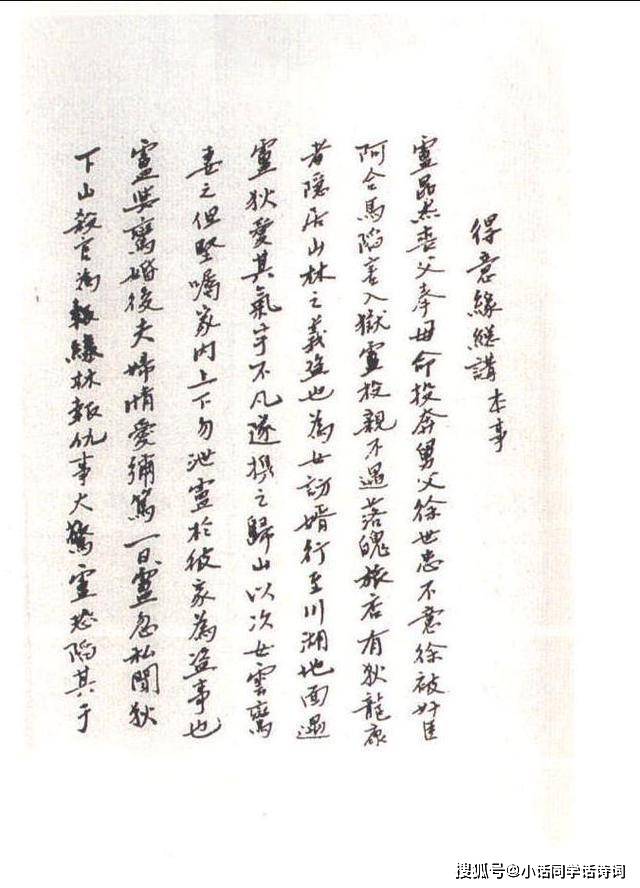 得意緣總講 本事
盧昆杰喪父奉母命投奔舅父徐世忠不意徐被奸臣
阿合馬陷害入獄盧投親不遇落魄旅店有狄龍康
者隱居山林之義盜也為女訪婿行至川湖地面遇
盧狄愛其氣宇不凡遂携之歸山以次女雲鸞
妻之但堅囑家內上下勿泄盧於彼家為盜事也
盧與鸞婚後夫婦情愛彌篤一日盧忽私聞狄
下山殺官為綠林報仇事大驚盧恐陷其于
搜狐号@小话同学话诗词